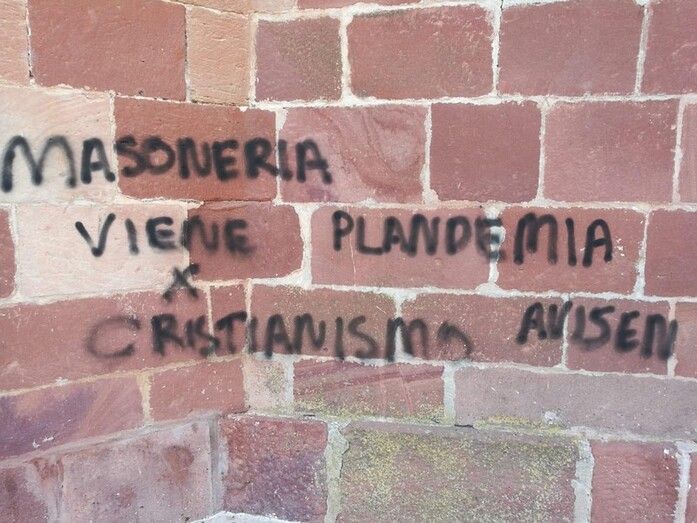 MASONERIA
VIENE PLANDEMIA
X
CRISTIANISMO AVISEN